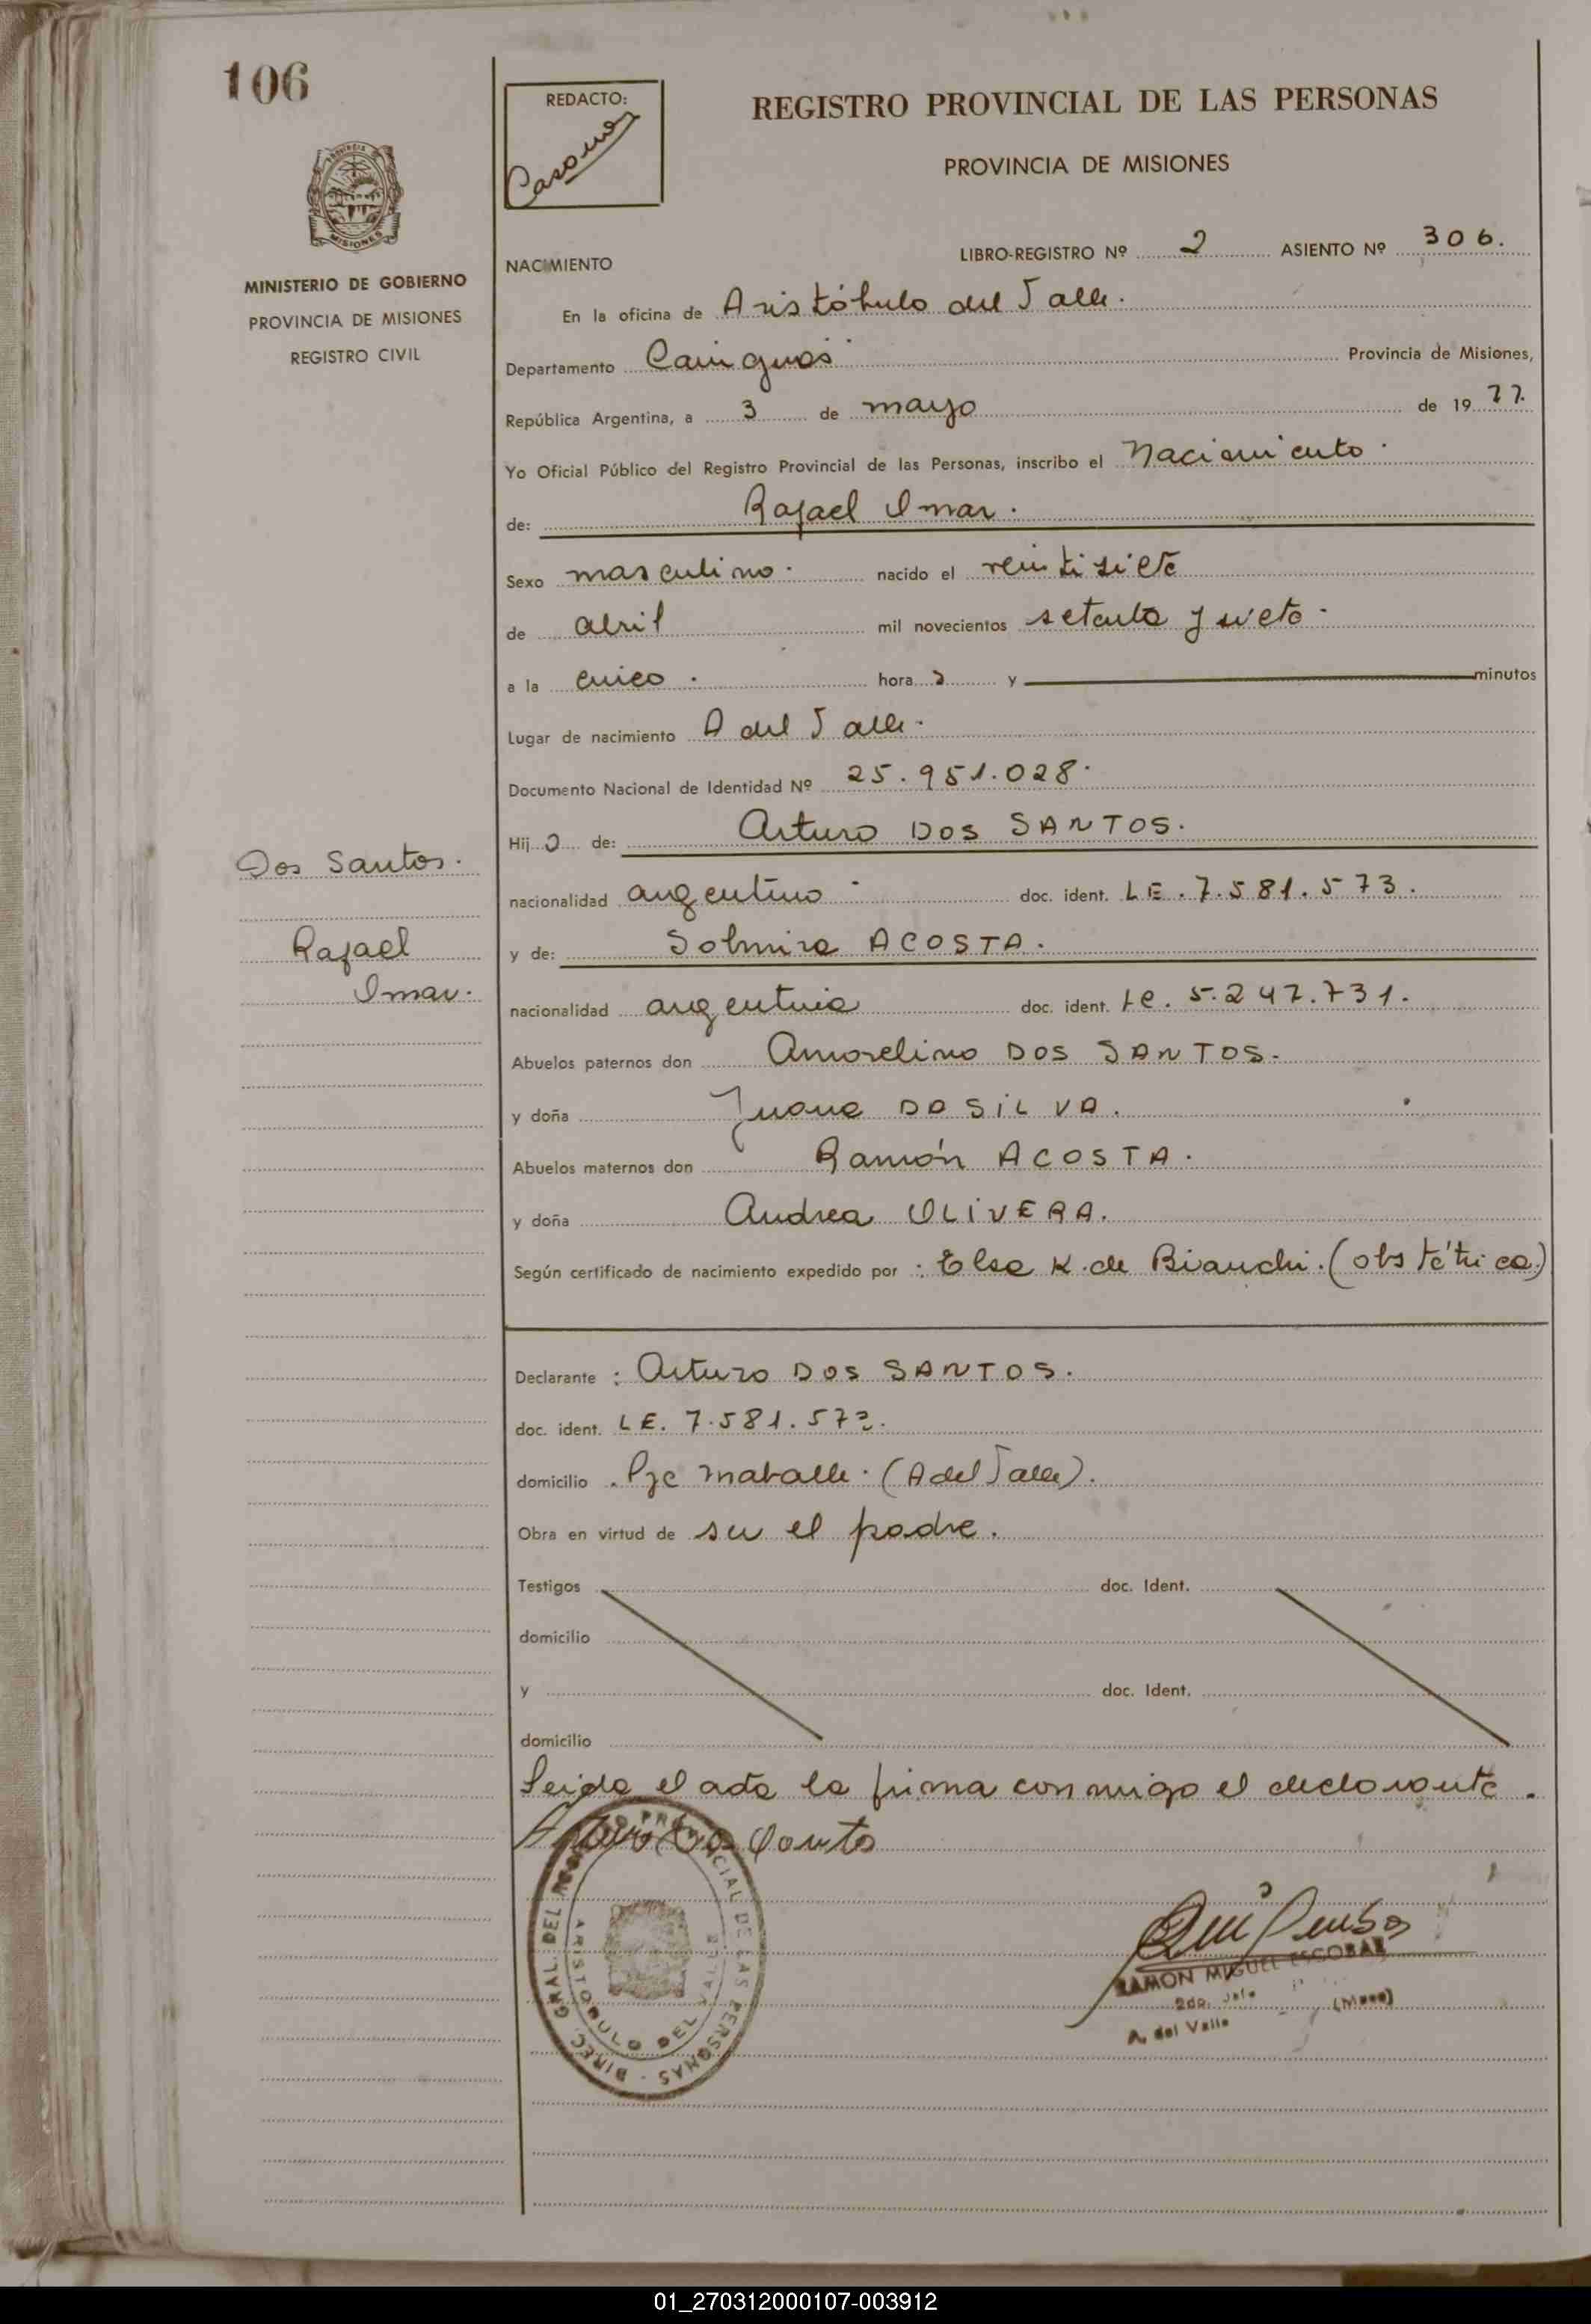 106
REDACTO:
REGISTRO PROVINCIAL DE LAS PERSONAS
PROVINCIA DE MISIONES
MISIONES
MINISTERIO DE GOBIERNO
PROVINCIA DE MISIONES
REGISTRO CIVIL
LIBRO-REGISTRO Nº 2 ASIENTO Nº 306.
NACIMIENTO
En la oficina de Aristóbulo del Valle.
Departamento Cainguás Provincia de Misiones,
República Argentina, a 3 de mayo de 1977.
Yo Oficial Público del Registro Provincial de las Personas, inscribo el Nacimiento
de: Rafael Omar.
Sexo masculino. nacido el veintisiete
de abril mil novecientos setenta y siete.
a la cinco. hora s y minutos
Lugar de nacimiento A del Valle.
Documento Nacional de Identidad Nº 25.951.028.
Hijo de: Arturo DOS SANTOS.
Dos Santos.
nacionalidad argentino doc. ident. LE. 7.581.573.
Rafael
y de: Solmira ACOSTA.
Omar.
nacionalidad argentina doc. ident. LC. 5.247.731.
Abuelos paternos don Amorelino DOS SANTOS.
y doña Juana DA SILVA.
Abuelos maternos don Ramón ACOSTA.
y doña Andrea OLIVERA.
Según certificado de nacimiento expedido por : Elsa K. de Bianchi. (obstétrica)
Declarante : Arturo DOS SANTOS.
doc. ident. LE. 7.581.573.
domicilio Pje Mavalle. (A del Valle).
Obra en virtud de ser el padre.
Testigos doc. Ident.
domicilio
y doc. Ident.
domicilio
Leida el acta la firma conmigo el declarante.
Arturo Do Santo
DIREC. GRAL. DEL REGISTRO PROVINCIAL DE LAS PERSONAS
ARISTOBULO DEL VALLE
RAMON MIGUEL ESCOBAR
2do. Jefe (Mnes)
A. del Valle
01_270312000107-003912